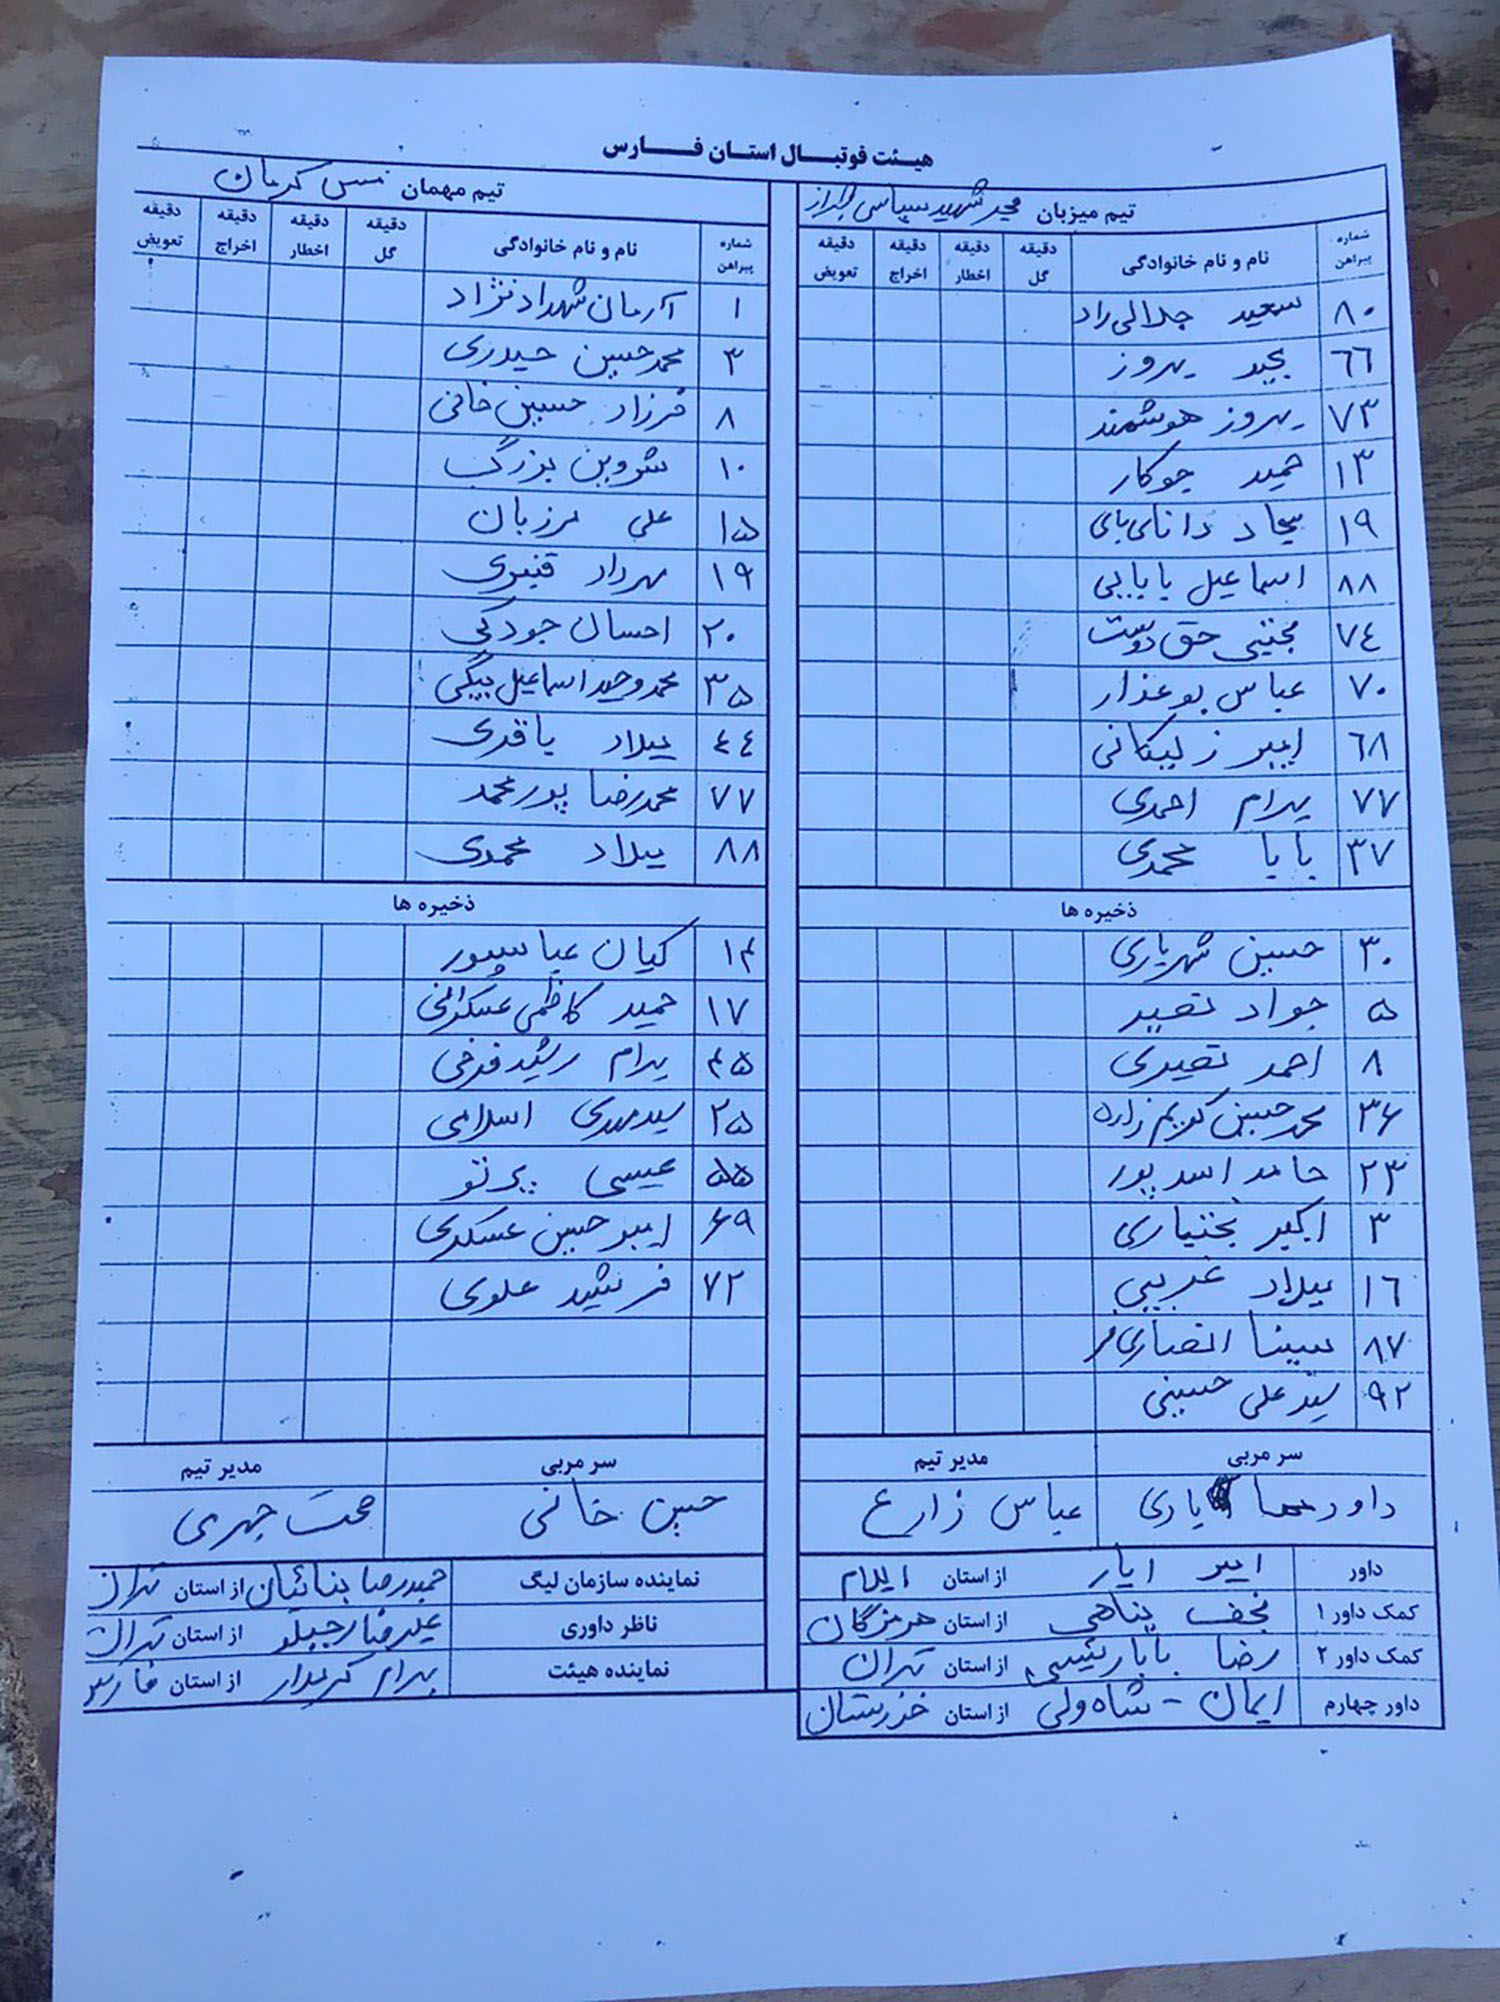 هیئت فوتبال استان فارس
تیم میزبان شهید سپاسی شیراز
شماره پیراهن نام و نام خانوادگی دقیقه گل دقیقه اخطار دقیقه اخراج دقیقه تعویض
۸۰ سعید جلالی راد
۶۶ مجید بهروز
۷۳ بهروز هوشمند
۱۳ حمید جوکار
۱۹ سجاد دانای بای
۸۸ اسماعیل بابایی
۷۴ مجتبی حق دوست
۷۰ عباس بوعذار
۶۸ امیر زلیکانی
۷۷ پدرام احمدی
۳۷ بابا محمدی
ذخیره ها
۳۰ حسین شهریاری
۵ جواد نصیر
۸ احمد نصیری
۳۶ محمدحسین کریم زاده
۲۳ حامد اسدپور
۳ اکبر بختیاری
۱۶ میلاد غریبی
۸۷ سینا انصاری فر
۹۲ سید علی حسینی
سر مربی مدیر تیم
داور یاری عباس زارع
داور امیر ایار از استان ایلام
کمک داور ۱ نجف پناهی از استان هرمزگان
کمک داور ۲ رضا بابارئیسی از استان تهران
داور چهارم ایمان - شاه ولی از استان خوزستان
تیم مهمان مس کرمان
شماره پیراهن نام و نام خانوادگی دقیقه گل دقیقه اخطار دقیقه اخراج دقیقه تعویض
۱ آرمان شهدادنژاد
۳ محمدحسین حیدری
۸ فرزاد حسین خانی
۱۰ شروین بزرگ
۱۵ علی مرزبان
۱۹ مهرداد قنبری
۲۰ احسان جودکی
۳۵ محمدوحید اسماعیل بیگی
۴۴ میلاد باقری
۷۷ محمدرضا پورمحمد
۸۸ میلاد محمدی
ذخیره ها
۱۴ کیان عباسپور
۱۷ حمید کاظمی عسکرانی
۴۵ پدرام رشیدفرخی
۲۵ سیدمهدی اسلامی
۵۵ عیسی پرتو
۶۹ امیرحسین عسکری
۷۲ فرشید علوی
سر مربی مدیر تیم
حسین خانی حجت چهری
نماینده سازمان لیگ حمیدرضا بنائیان از استان تهران
ناظر داوری علیرضا رجبلو از استان تهران
نماینده هیئت بهرام کرمدار از استان فارس